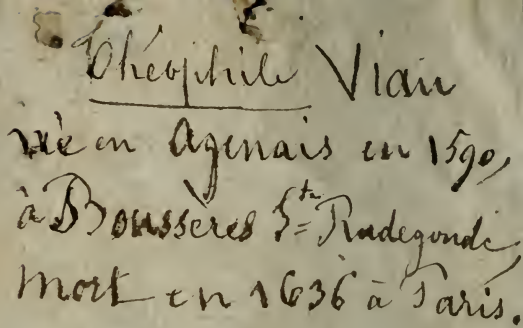 Théophile Viau
né en Agenais en 1590,
à Boussères Ste Radegonde
mort en 1636 à Paris.